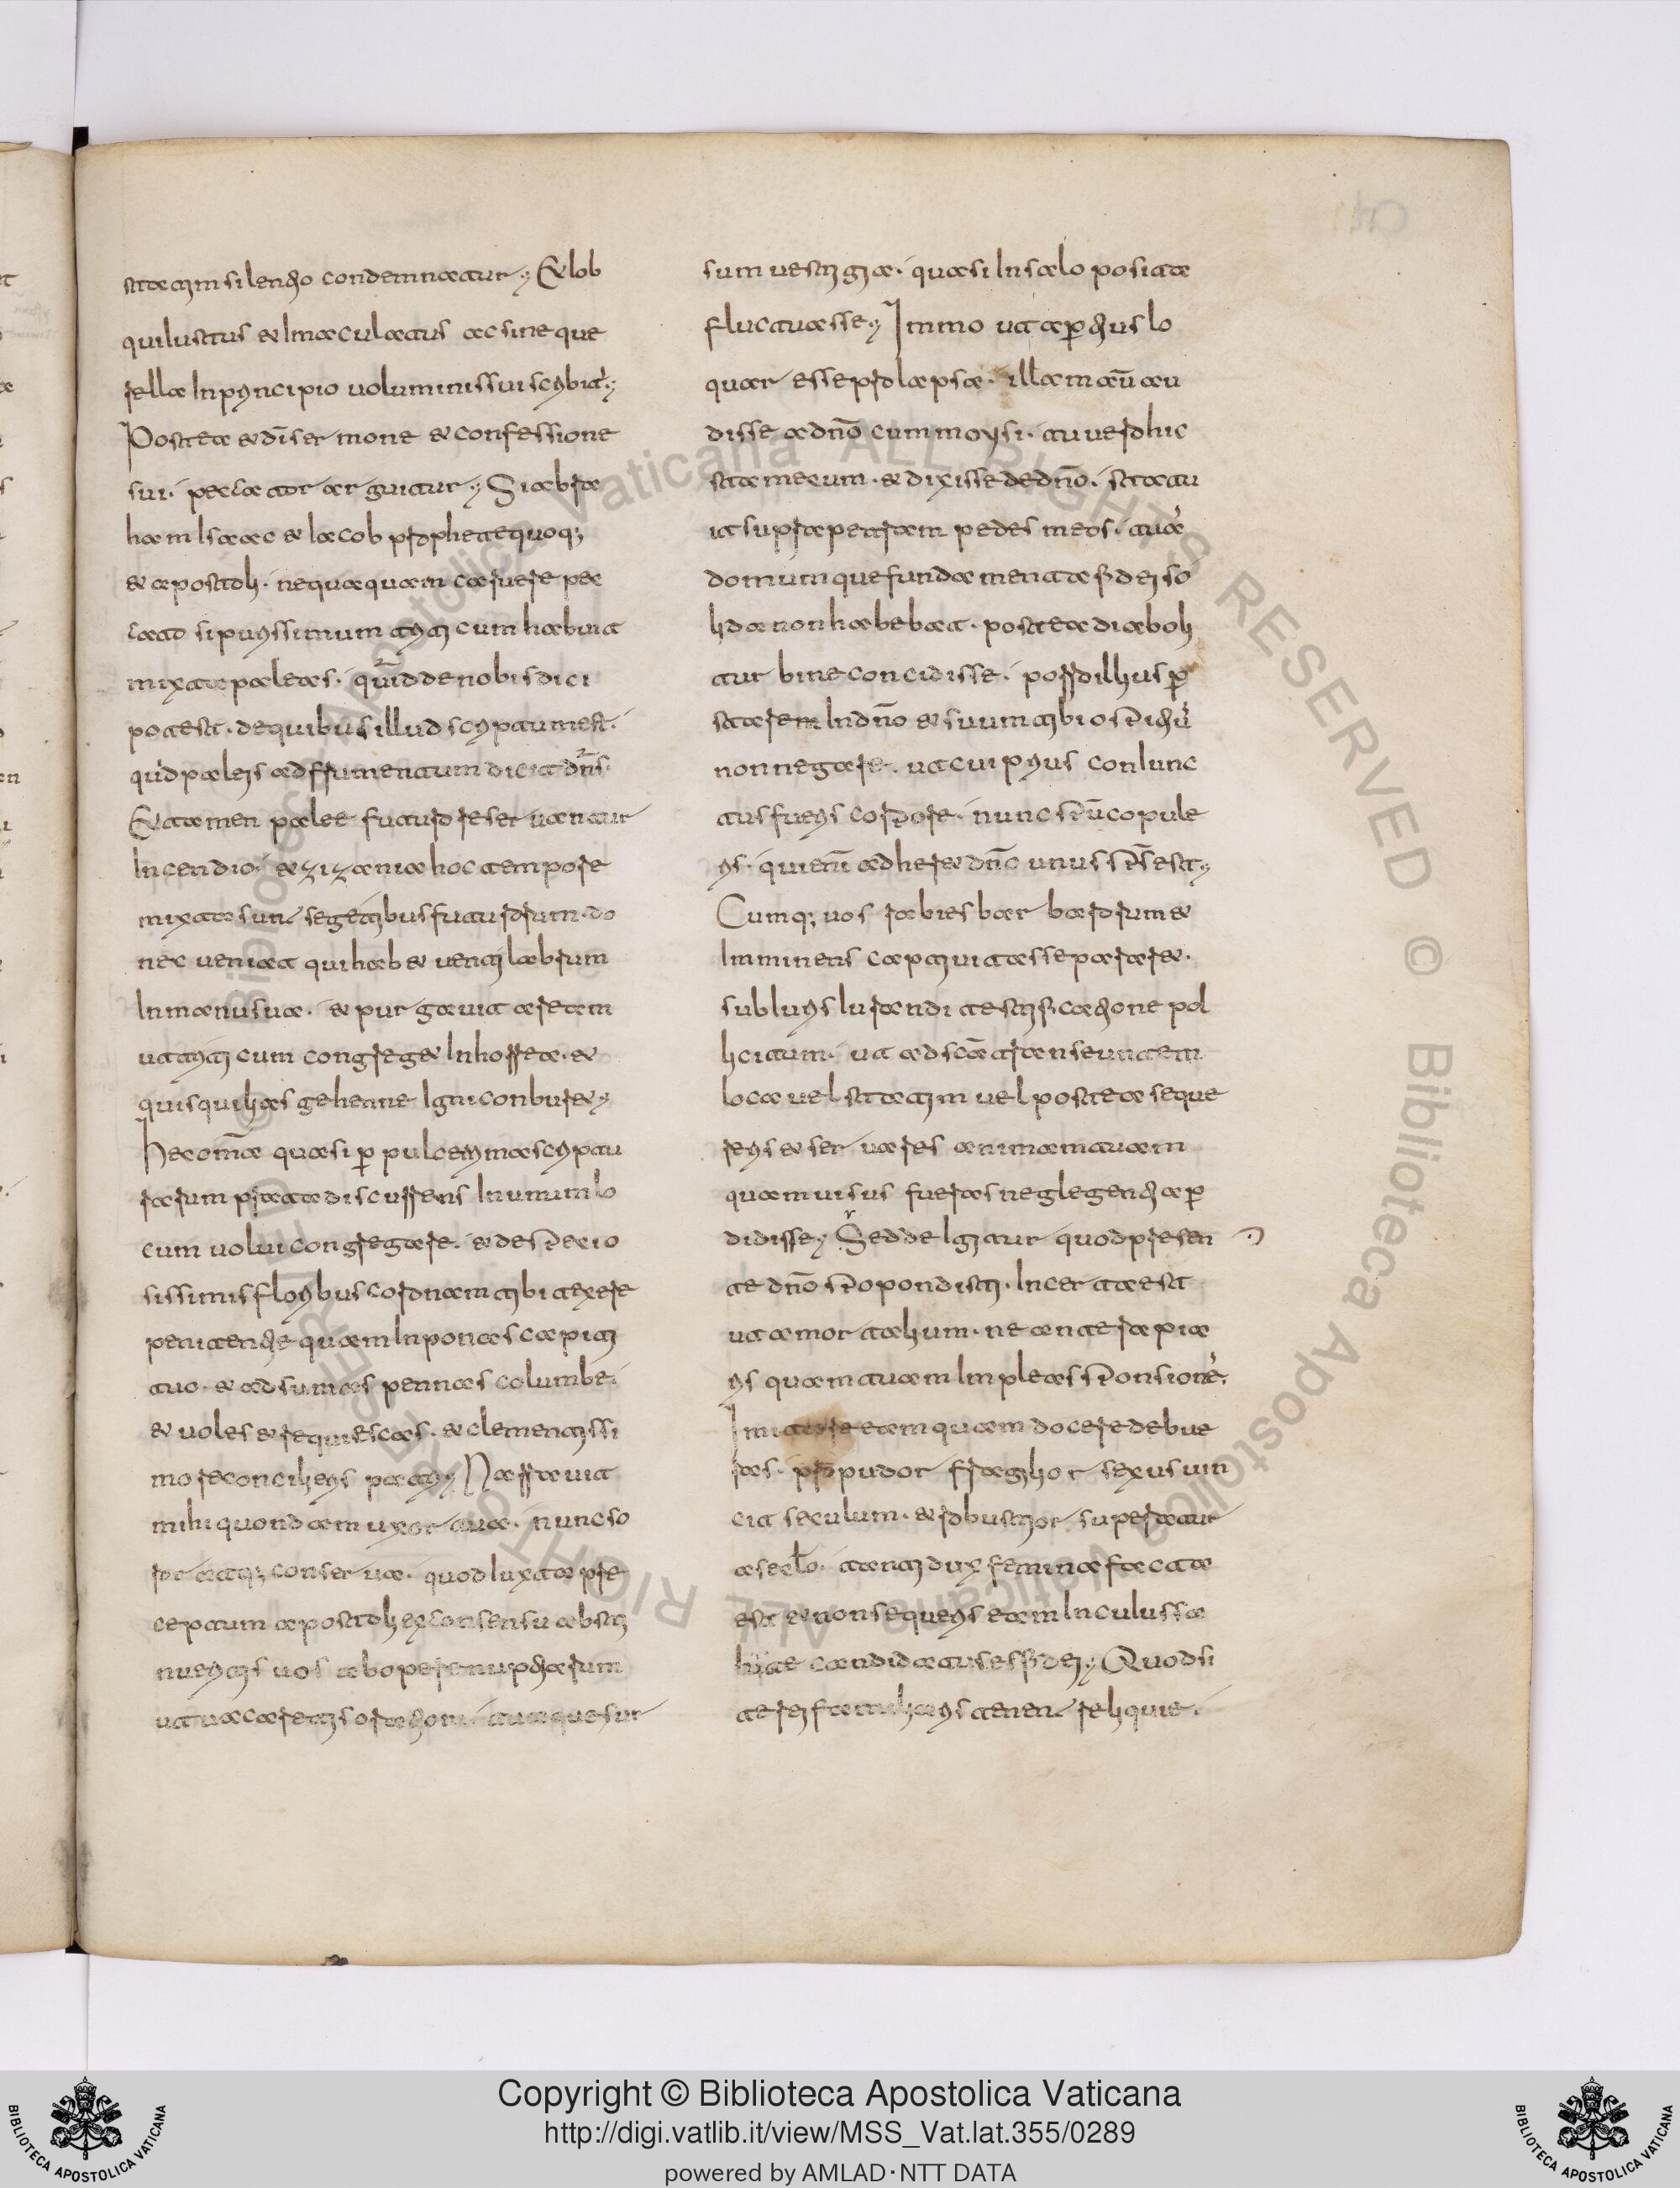 statim silentio condemnatur; Et Iob
qui Iustus et Inmaculatus ac sine que
rella In principio voluminis sui scribit̉;
Postea et dī sermone et confessione
sui. peccator arguitur; Si abra
ham Isaac et Iacob prophete quoq;
et apostoli. nequaquam caruere pec
cato si purissimum triticum habuit
mixtas paleas. quid de nobis dici
potest. de quibus illud scriptum est.
quid paleis ad frumentum dicit dn̄s.
Et tamen palee futuro reservantur
Incendio. et zizania hoc tempore
mixta sunt segetibus futurorum. do
nec veniat qui habet ventilabrum
In manu sua. et purgavit aream
ut triticum congreget In horrea. et
quisquilias gehenne Igni conburet;
Hec om̄a quasi p̄ pulcerrima scriptu
rarum prata discurrens In unum lo
cum volui congregare. et de spetio
sissimis floribus coronam tibi texere
penitentie quam Inponas capiti
tuo. et adsumas pennas columbe.
et voles et requiescas. et clementissi
mo reconcilieris patri; Narravit
mihi quondam uxor tua. nunc so
ror atq; conserva. quod iuxta pre
ceptum apostoli ex consensu absti
nueritis vos ab opere nuptiarum
ut vacaretis orationi. tuaque rur
sum vestigia. quasi In salo posita
fluctuasse; Immo ut ap̄tius lo
quar esse prolapsa. illam aū au
disse a dn̄o cum moysi. tu vero hic
sta mecum. et dixisse de dn̄o. statu
it supra petram pedes meos. tuā
domum que fundamenta fidei so
lida non habebat. postea diaboli
turbine concidisse. porro illius p̄
stare In dn̄o et suum tibi ospitiū
non negare. ut cui prius coniunc
tus fueris corpore. nunc spū copule
ris. qui enī adheret dn̄o unus sp̄s est;
Cumq; vos rabies barbarorum et
Imminens captivitas separaret.
sub Iurisiurandi testificatione pol
licitum. ut ad scā transeuntem
loca vel statim vel postea seque
reris et servares animam tuam
quam visus fueras neglegentia p̄
didisse; Redde Igitur quod presen
te dn̄o spopondisti. Incerta est
vita mortalium. ne ante rapia
ris quam tuam Impleas sponsionē.
Imitare eam quam docere debue
ras. pro pudor fragilior sexus vin
cit seculum. et robustior superatur
a seclo. tanti dux femina facta
est et non sequeris eam In cuius sa
lute candidatus es fidei; Quod si
te rei familiaris tenent reliquie.